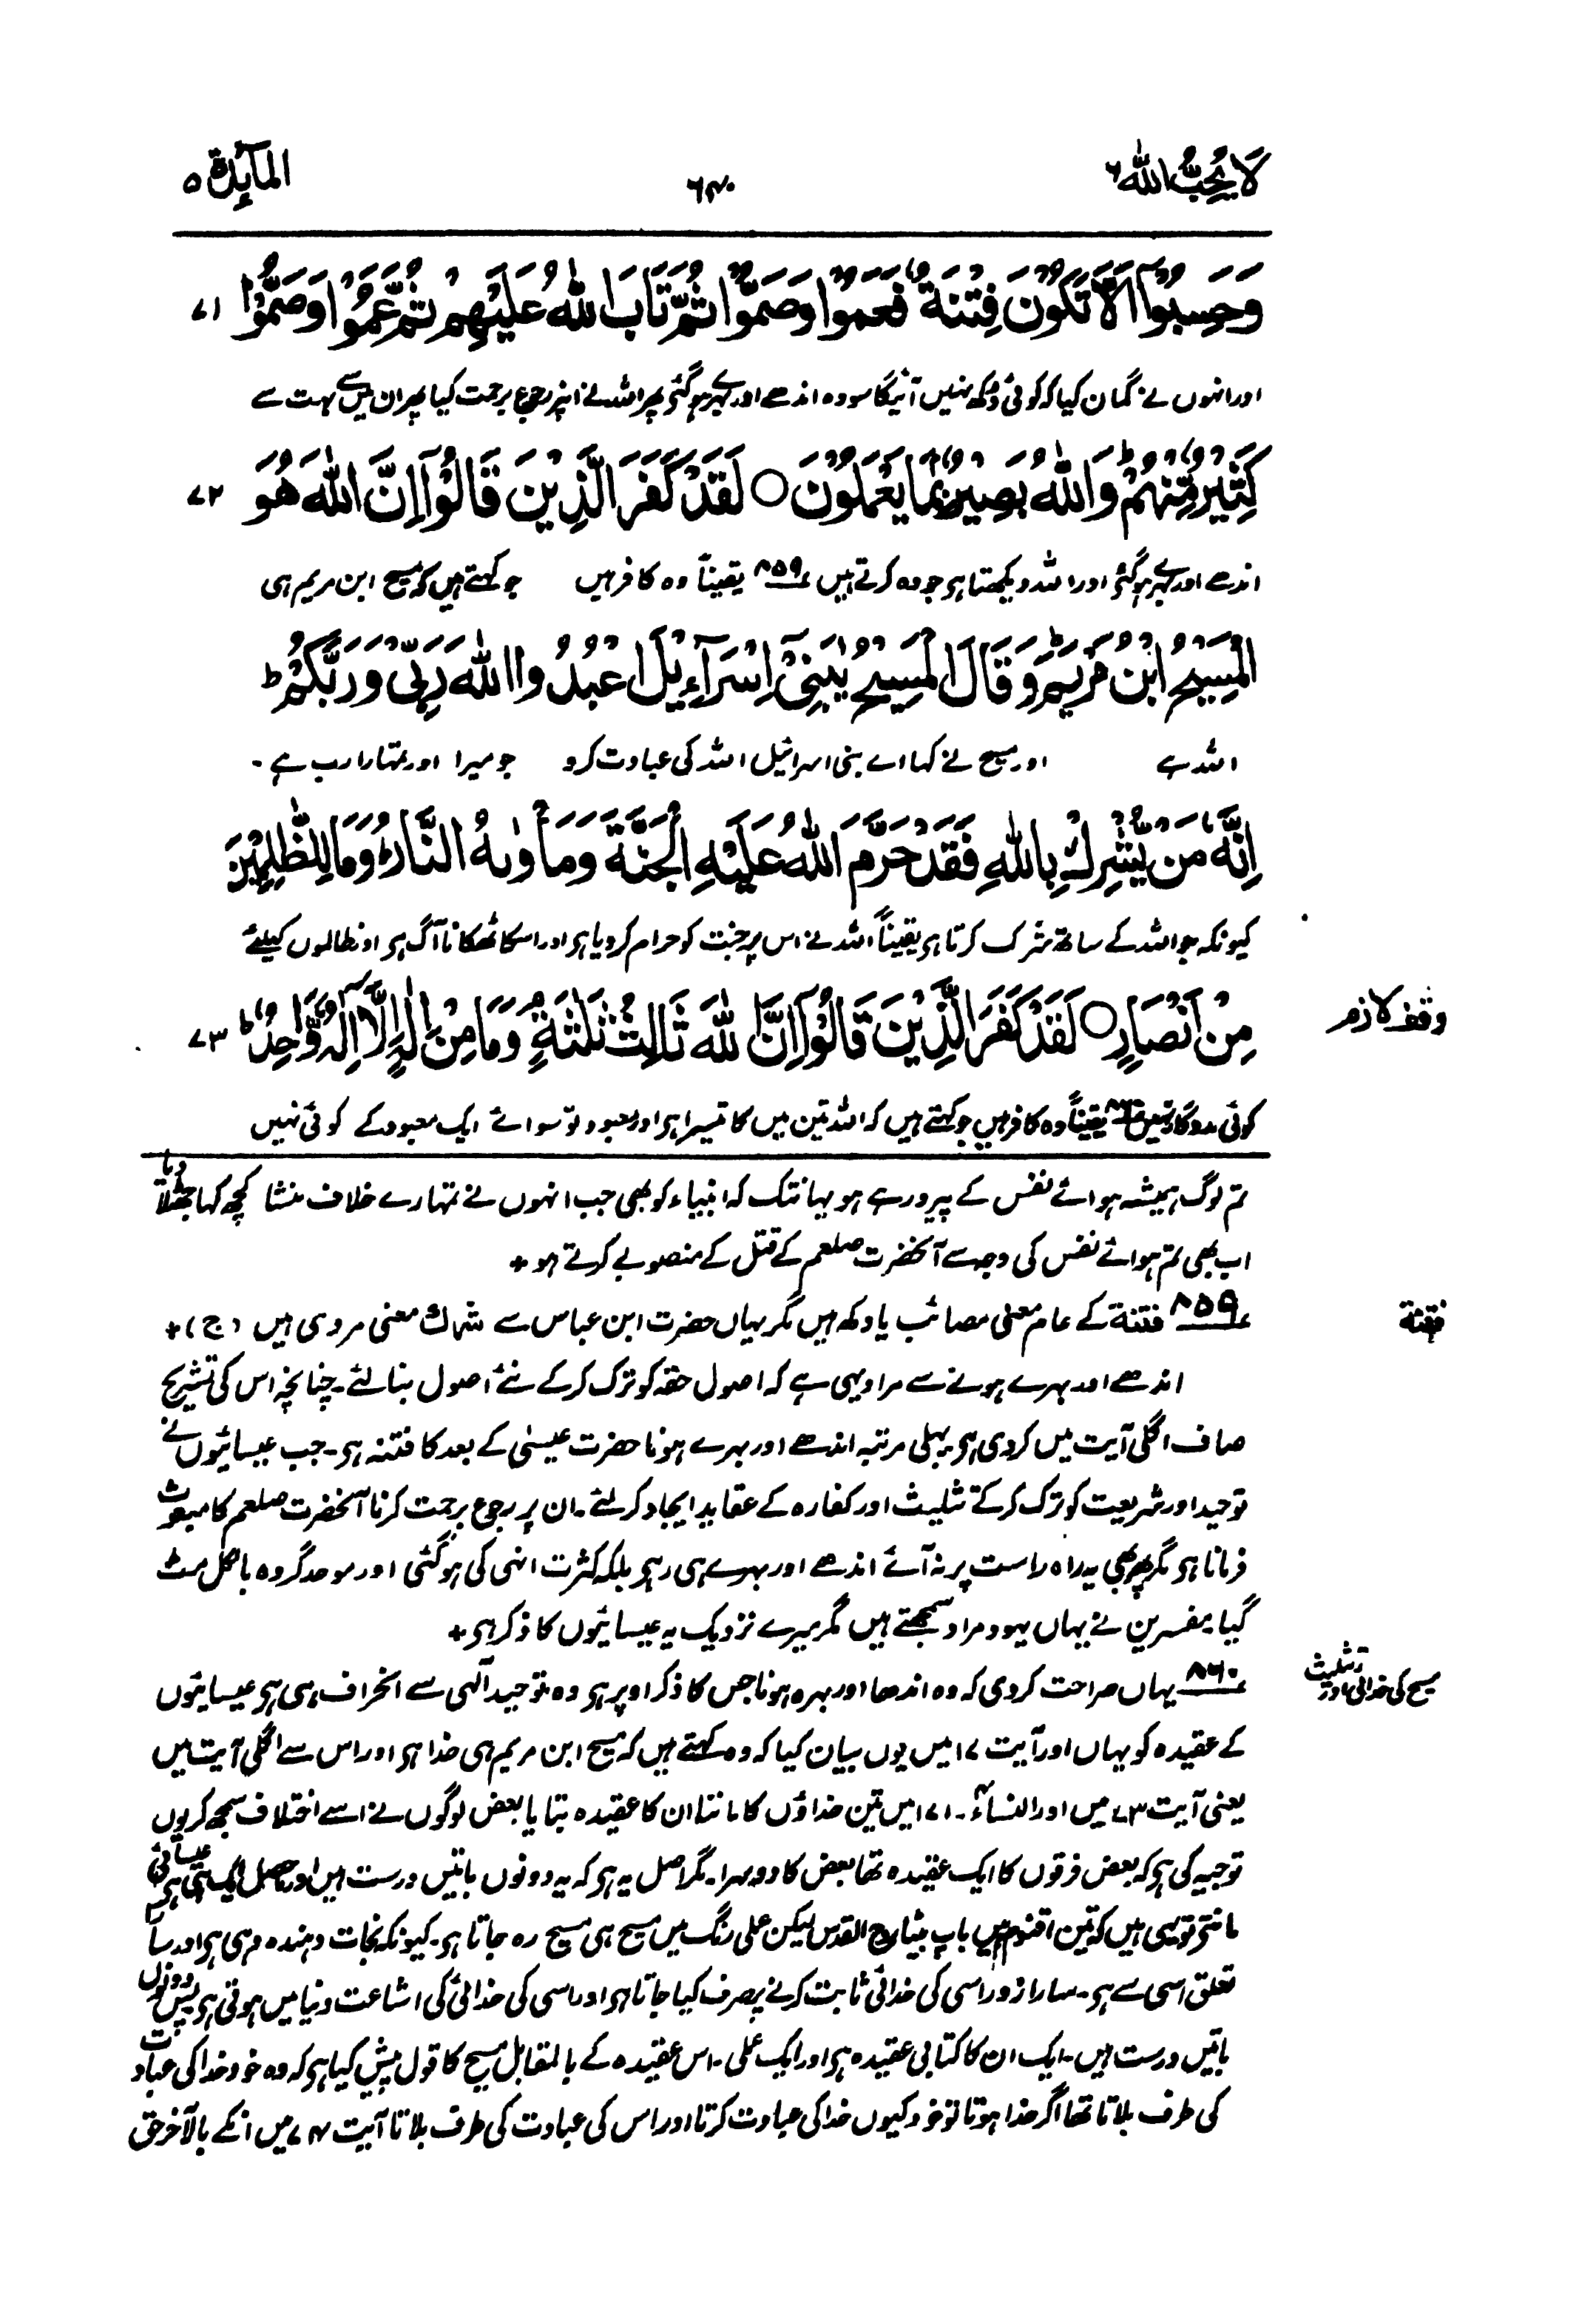 لَا يُحِبُّ اللهُ ٦
٦٤٠
المآئدة ٥
وَحَسِبُوْٓا اَلَّا تَكُوْنَ فِتْنَةٌ فَعَمُوْا وَصَمُّوْا ثُمَّ تَابَ اللّٰهُ عَلَيْهِمْ ثُمَّ عَمُوْا وَصَمُّوْا ٧١
اور انہوں نے گمان کیا کہ کوئی دُکھ نہیں آئیگا سو وہ اندھے اور بہرے ہو گئے پھر اللہ نے انپر رجوع برحمت کیا پھر ان میں سے بہت سے
كَثِيْرٌ مِّنْهُمْ ؕ وَاللّٰهُ بَصِيْرٌۢ بِمَا يَعْمَلُوْنَ ○ لَقَدْ كَفَرَ الَّذِيْنَ قَالُوْٓا اِنَّ اللّٰهَ هُوَ ٧٢
اندھے اور بہرے ہو گئے اور اللہ دیکھتا ہی جو وہ کرتے ہیں ۸۵۹ یقیناً وہ کافر ہیں جو کہتے ہیں کہ مسیح ابن مریم ہی
الْمَسِيْحُ ابْنُ مَرْيَمَ ؕ وَقَالَ الْمَسِيْحُ يٰبَنِيْٓ اِسْرَآءِيْلَ اعْبُدُوا اللّٰهَ رَبِّيْ وَرَبَّكُمْ ؕ
اللہ ہے اور مسیح نے کہا اے بنی اسرائیل اللہ کی عبادت کرو جو میرا اور تمہارا رب ہے ۔
اِنَّهٗ مَنْ يُّشْرِكْ بِاللّٰهِ فَقَدْ حَرَّمَ اللّٰهُ عَلَيْهِ الْجَنَّةَ وَمَاْوٰىهُ النَّارُ ؕ وَمَا لِلظّٰلِمِيْنَ
کیونکہ جو اللہ کے ساتھ شرک کرتا ہی یقیناً اللہ نے اس پر جنت کو حرام کر دیا ہی اور اسکا ٹھکانا آگ ہی اور ظالموں کیلئے
مِنْ اَنْصَارٍ ○ لَقَدْ كَفَرَ الَّذِيْنَ قَالُوْٓا اِنَّ اللّٰهَ ثَالِثُ ثَلٰثَةٍ ۘ وَمَا مِنْ اِلٰهٍ اِلَّآ اِلٰهٌ وَّاحِدٌ ؕ ٧٣
وقف لازم
کوئی مددگار نہیں ۸۶۰ یقیناً وہ کافر ہیں جو کہتے ہیں کہ اللہ تین میں کا تیسرا ہی اور معبود تو سوائے ایک معبود کے کوئی نہیں
تم لوگ ہمیشہ ہوائے نفس کے پیرو رہے ہو یہانتک کہ انبیاء کو بھی جب انہوں نے تمہارے خلاف منشا کچھ کہا جھٹلا دیا
اب بھی تم ہوائے نفس کی وجہ سے آنحضرت صلعم کے قتل کے منصوبے کرتے ہو +
۸۵۹ فتنۃ کے عام معنی مصائب یا دکھ ہیں مگر یہاں حضرت ابن عباس سے شرک معنی مروی ہیں (ج) +
فتنۃ
اندھے اور بہرے ہونے سے مراد یہی ہے کہ اصول حقہ کو ترک کرکے نئے اصول بنا لئے۔ چنانچہ اس کی تشریح
صاف اگلی آیت میں کردی ہی۔ پہلی مرتبہ اندھے اور بہرے ہونا حضرت عیسیٰ کے بعد کا فتنہ ہی۔ جب عیسائیوں نے
توحید اور شریعت کو ترک کرکے تثلیث اور کفارہ کے عقاید ایجاد کر لئے۔ ان پر رجوع برحمت کرنا آنحضرت صلعم کا مبعوث
فرمانا ہی مگر پھر بھی یہ راہ راست پر نہ آئے اندھے اور بہرے ہی رہی بلکہ کثرت انہی کی ہو گئی اور موحد گروہ بالکل مٹ
گیا۔ مفسرین نے یہاں یہود مراد سمجھتے ہیں مگر میرے نزدیک یہ عیسائیوں کا ذکر ہی +
۸۶۰ یہاں صراحت کردی کہ وہ اندھا اور بہرہ ہونا جس کا ذکر اوپر ہی وہ توحید الٰہی سے انحراف ہی ہی عیسائیوں
مسیح کی خدائی اور تثلیث
کے عقیدہ کو یہاں اور آیت ۱۷ میں یوں بیان کیا کہ وہ کہتے ہیں کہ مسیح ابن مریم ہی خدا ہی اور اس سے اگلی آیت میں
یعنی آیت ۷۳ میں اور النساء ۴۔ ۱۷۱ میں تین خداؤں کا ماننا ان کا عقیدہ بتایا بعض لوگوں نے اسے اختلاف سمجھ کر یوں
توجیہ کی ہی کہ بعض فرقوں کا ایک عقیدہ تھا بعض کا دوسرا۔ مگر اصل یہ ہی کہ یہ دونوں باتیں درست ہیں اور حاصل ایک ہی ہی عیسائی
مانتے تو یہی ہیں کہ تین اقنوم ہیں باپ بیٹا روح القدس لیکن عملی رنگ میں مسیح ہی مسیح رہ جاتا ہی۔ کیونکہ نجات دہندہ وہی ہی اور سارا
تعلق اسی سے ہی۔ سارا زور اسی کی خدائی ثابت کرنے پر صرف کیا جاتا ہی اور اسی کی خدائی کی اشاعت دنیا میں ہوتی ہی پس دونوں
باتیں درست ہیں۔ ایک ان کا کتابی عقیدہ ہی اور ایک عملی۔ اس عقیدہ کے بالمقابل مسیح کا قول پیش کیا ہی کہ وہ خود خدا کی عبادت
کی طرف بلاتا تھا اگر خدا ہوتا تو خود کیوں خدا کی عبادت کرتا اور اس کی عبادت کی طرف بلاتا آیت ۷۴ میں انکے بالآخر حق